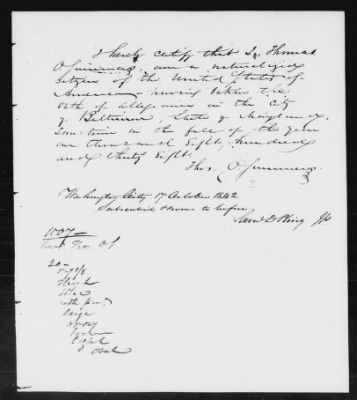 I hereby certify that I, Thomas
am a naturalized
citizen of the United States of
America having taken the
oath of allegiance in the City
of Baltimore, State of Maryland,
sometime in the fall of the year
one thousand eight hundred
and thirty eight.
Thos. O.
Washington City 17 October 1842
Subscribed & sworn to before
Saml D King JP
20 -
5 7/8
High
blue
large
brown
light
oval